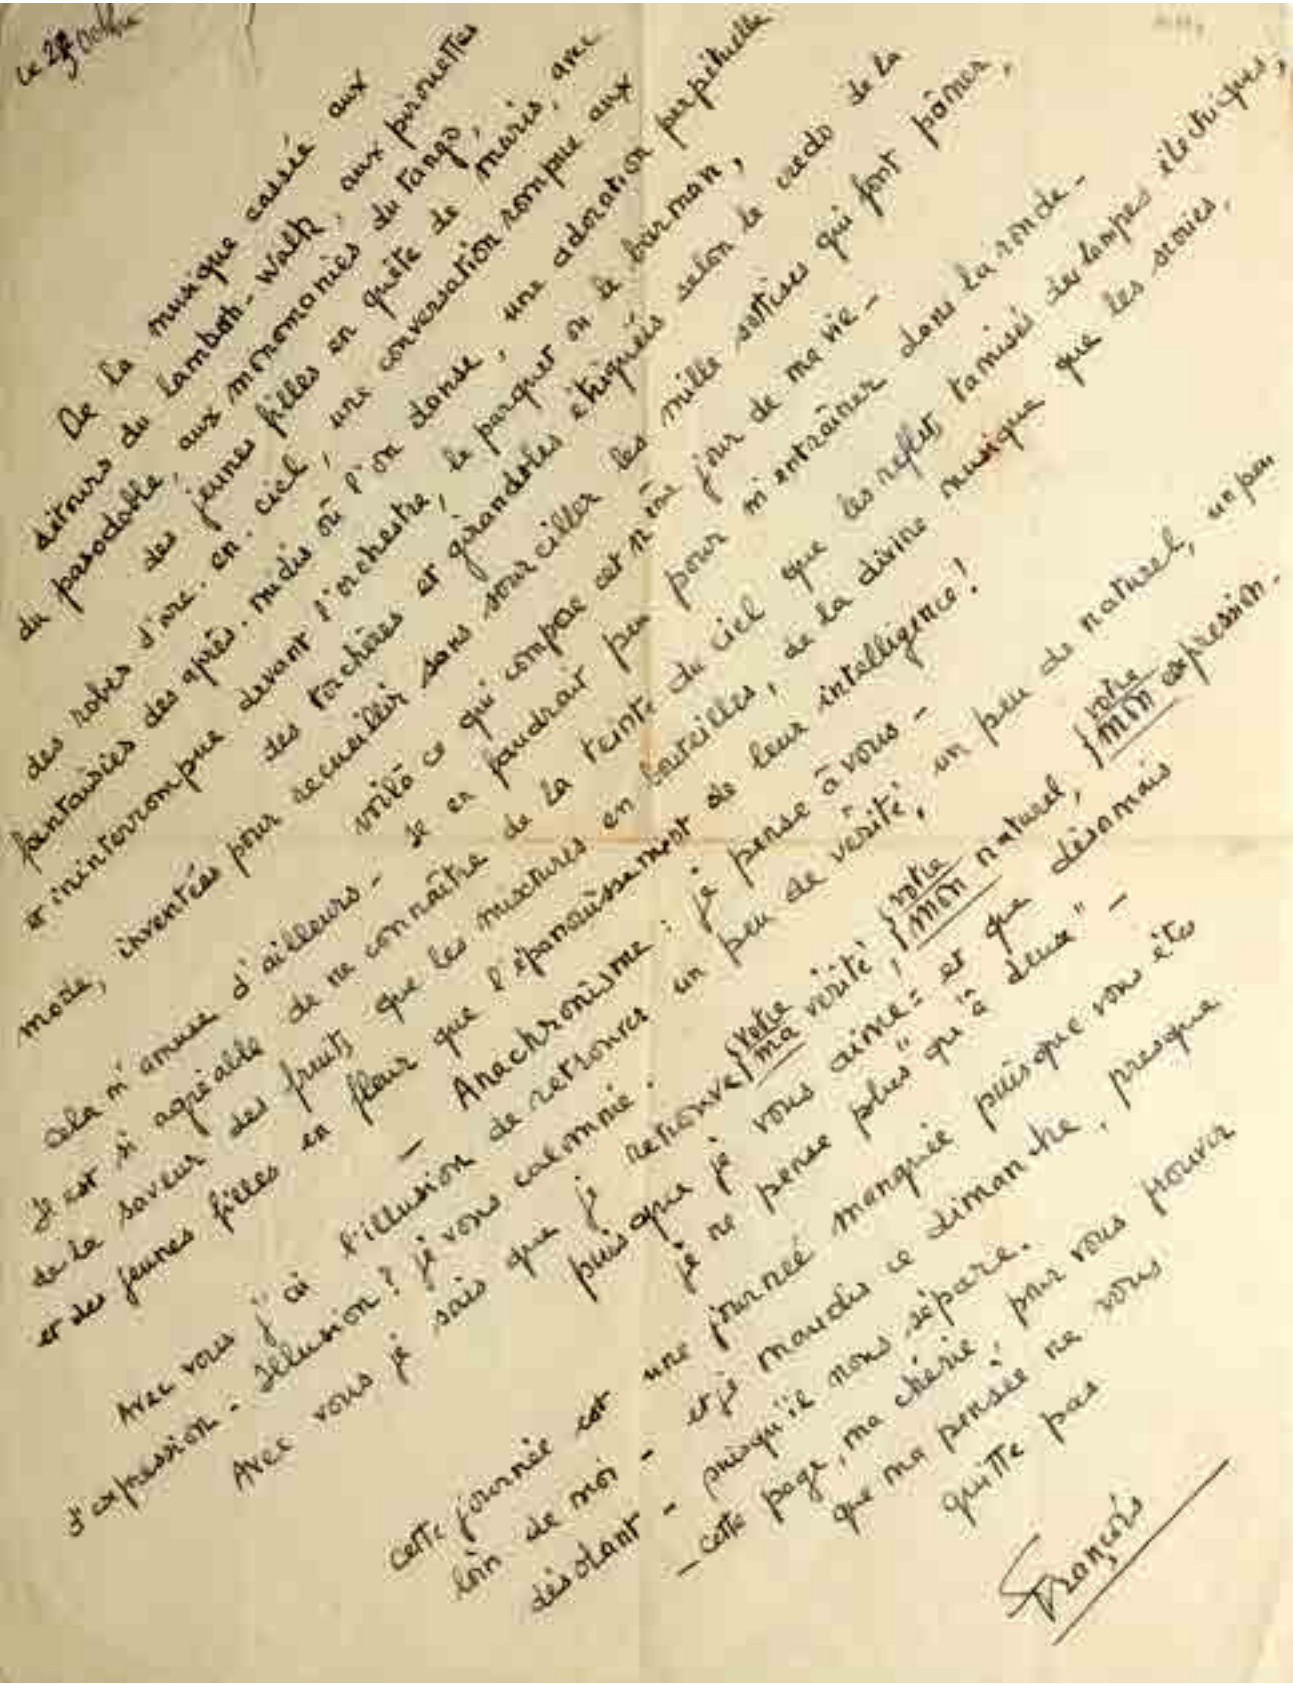 le 29 octobre
De la musique cassée aux
détours du lambeth-walk, aux pirouettes
du pasodoble, aux monomanies du tango,
des jeunes filles en quête de maris, avec
des robes d'arc-en-ciel, une conversation rompue aux
fantaisies des après-midis où l'on danse, une adoration perpétuelle
et ininterrompue devant l'orchestre, le parquet ou le barman,
des torchères et girandoles étiquées selon le credo de la
mode, inventées pour recueillir sans sourciller les mille sottises qui font pâmer,
voilà ce qui compose cet nième jour de ma vie -
Cela m'amuse d'ailleurs - Il en faudrait peu pour m'entraîner dans la ronde -
Il est si agréable de ne connaître de la teinte du ciel que les reflets tamisés des lampes électriques,
de la saveur des fruits que les mixtures en bouteilles, de la divine musique que les scories,
et des jeunes filles en fleur que l'épanouissement de leur intelligence !
- Anachronisme : je pense à vous -
Avec vous j'ai l'illusion de retrouver un peu de vérité, un peu de naturel, un peu
d'expression - Illusion ? je vous calomnie.
Avec vous je sais que je retrouve {votre ma vérité, {votre mon naturel, {votre mon expression -
puisque je vous aime - et que désormais
je ne pense plus "qu'à deux" -
Cette journée est une journée manquée puisque vous êtes
loin de moi - et je maudis ce dimanche, presque
désolant - puisqu'il nous sépare.
- cette page, ma chérie, pour vous prouver
que ma pensée ne vous
quitte pas
François